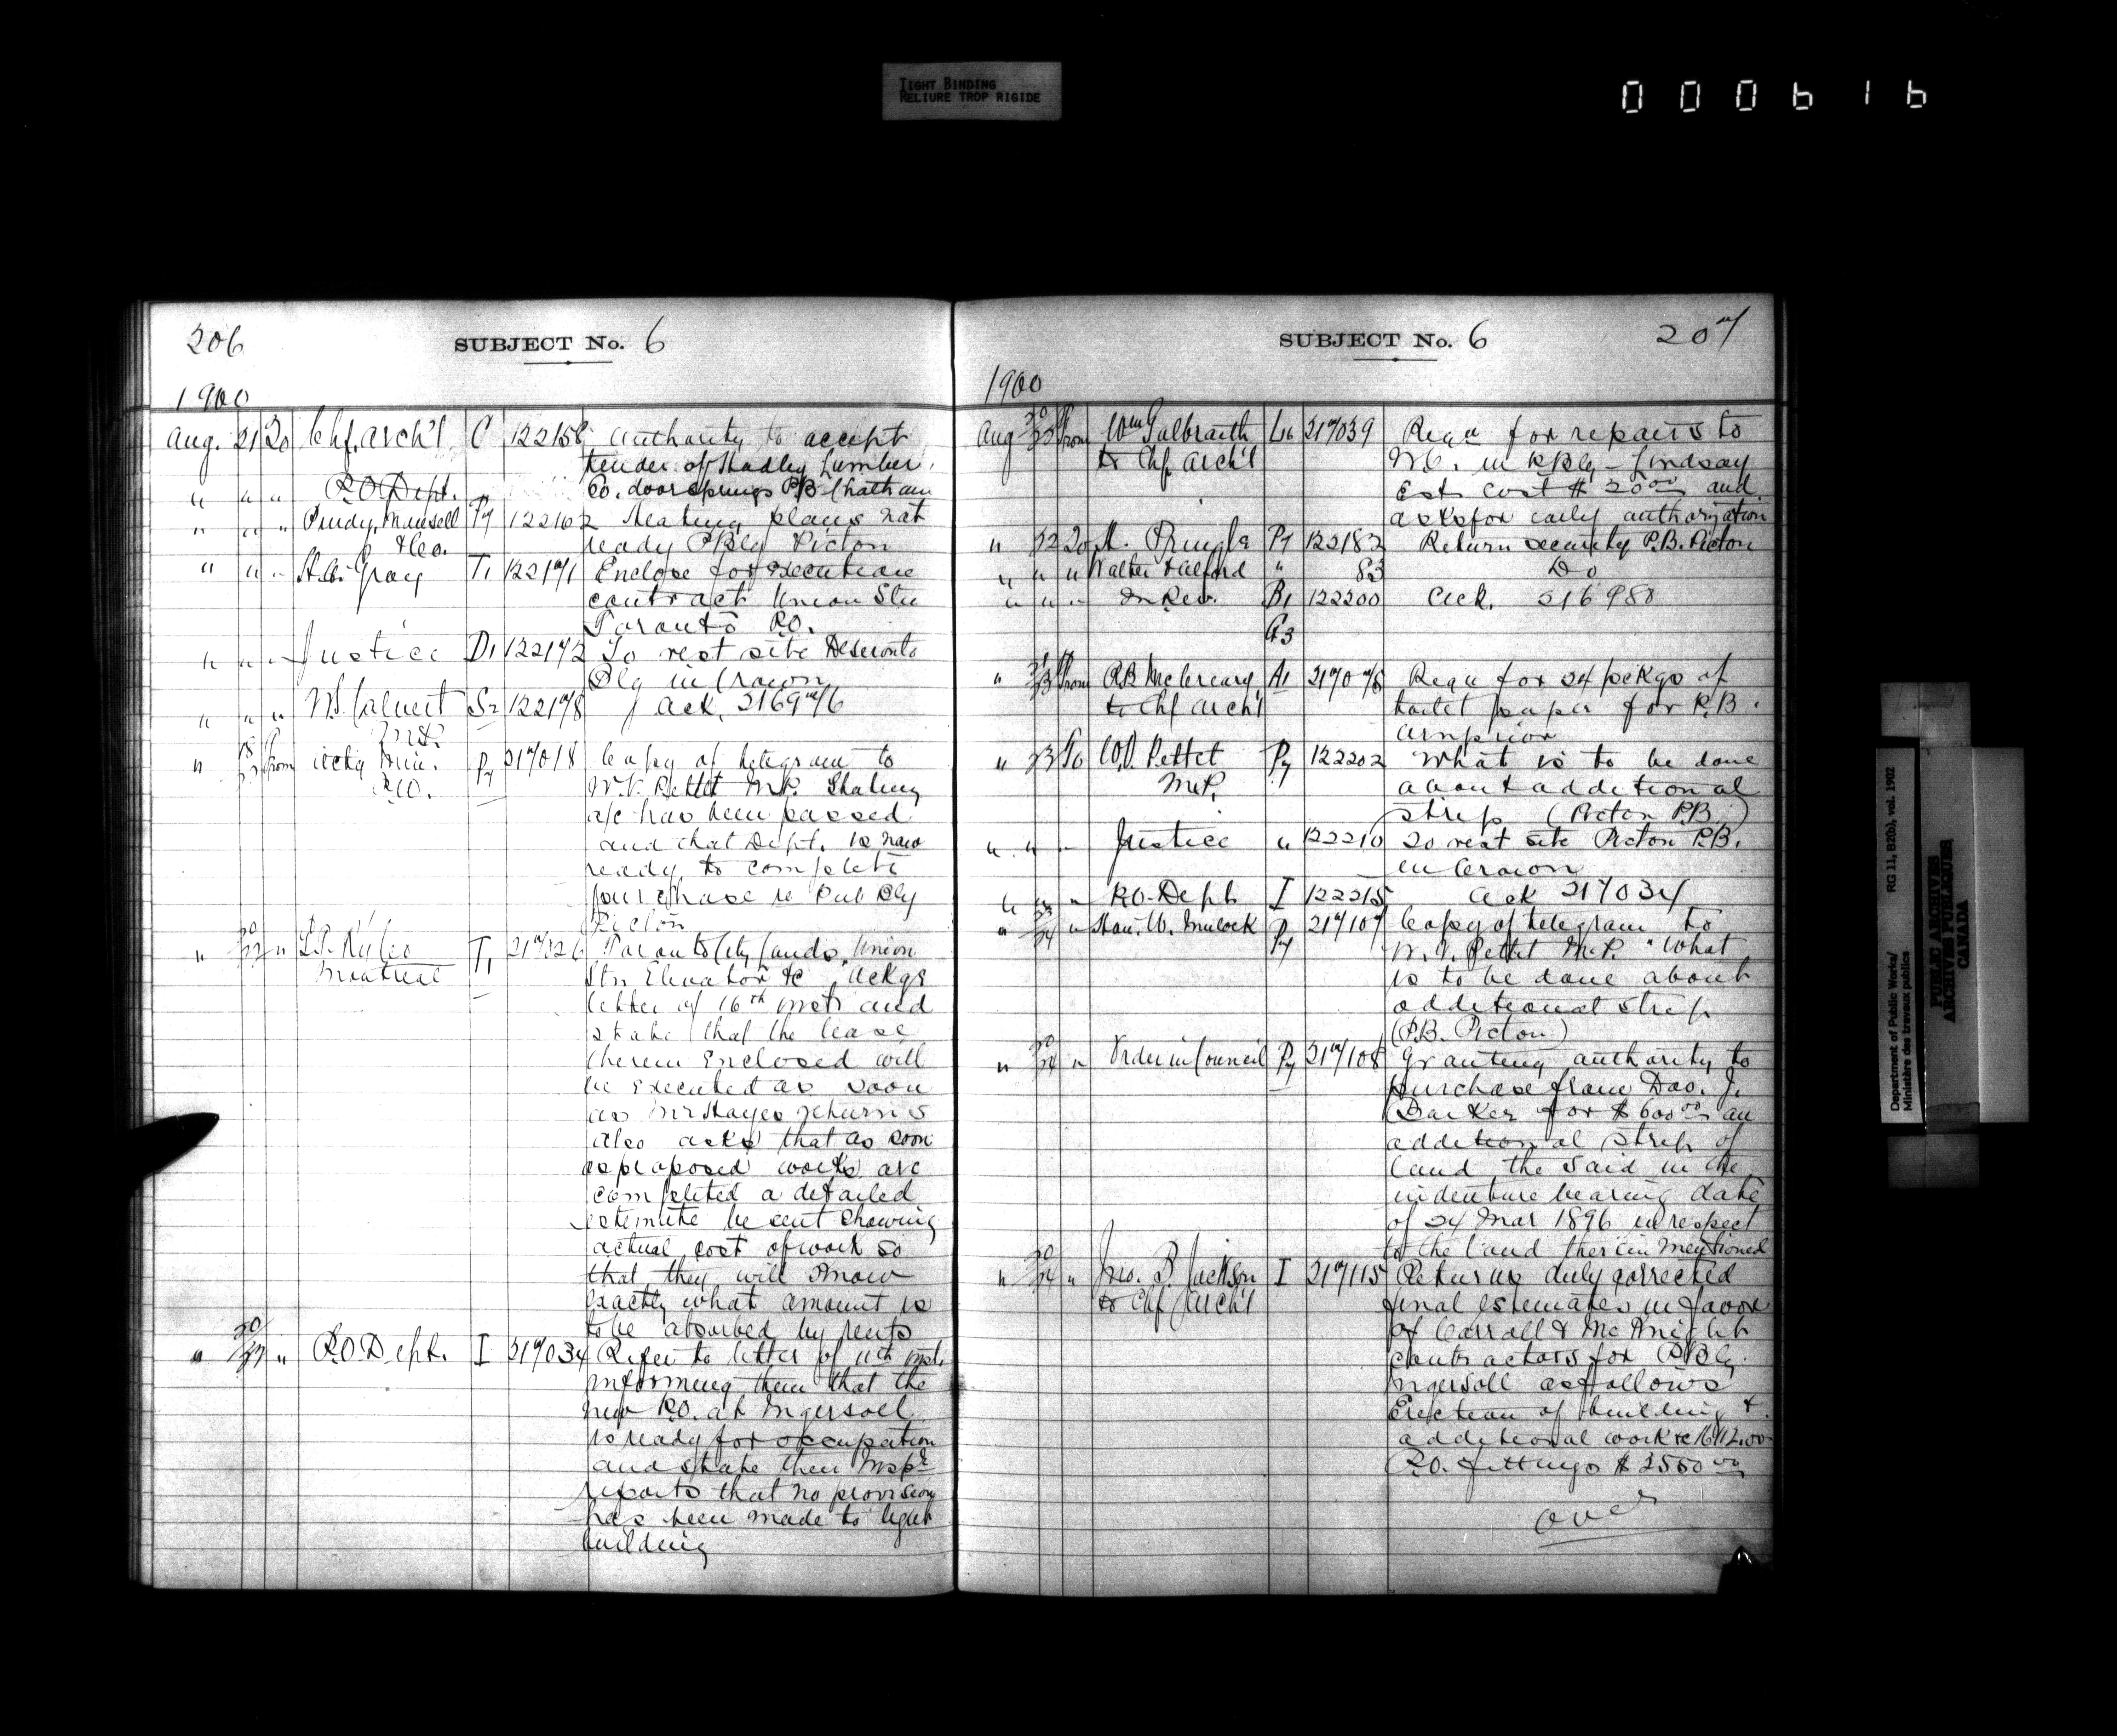 TIGHT BINDING
RELIURE TROP RIGIDE
000616
206
SUBJECT No. 6
1900
Aug. 21 20 Chf. Arch'l C 122158 Authority to accept
tender of Hadley Lumber
Co. door springs P.B. Chatham
" " " P.O. Dept. "
" " " Purdy, Mansell Py 122162 Heating plans not
& Co. ready P.Bldg Picton
" " " H.A. Gray T1 122171 Enclose for execution
contract Union Stn
Toronto P.O.
" " " Justice D1 122172 To vest site Deseronto
Bldg in Crown
" " " W.S. Calvert S2 122178 Ack. 216976
M.P.
" 18/22 From P.O. Py 217018 Copy of telegram to
W.V. Pettet M.P. Stating
a/c has been passed
and that Dept. is now
ready to complete
purchase re Pub Bldg
Picton
" 20/22 " Montreal T1 217026 Toronto City Lands, Union
Stn Elevator &c Ackgs
letter of 16th inst and
state that the lease
therein enclosed will
be executed as soon
as Mr Hayes returns
Also asks that as soon
as proposed works are
completed a detailed
estimate be sent showing
actual cost of work so
that they will know
exactly what amount is
to be absorbed by rents
" 20/22 " P.O. Dept. I 217034 Refer to letter of 11th inst.
informing them that the
new P.O. at Ingersoll
is ready for occupation
and state their Inspr
reports that no provision
has been made to light
building
SUBJECT No. 6
207
1900
Aug 20/22 From Wm Galbraith L6 217039 Requn for repairs to
to Chf Arch'l W.C. in P.Bldg - Lindsay
Est. cost $20.00 and
asks for early authorization
" 22 20 A. Pringle Py 122182 Return security P.B. Picton
" " " Walter Halford " 83 Do
" " " In Rev. B1 122200 Ack. 216980
G3
" 21/23 From R.B. McCreary A1 217076 Requn for 24 pckgs of
to Chf Arch'l toilet paper for P.B.
Arnprior
" 23 To W.V. Pettet Py 122202 What is to be done
M.P. about additional
strip (Picton P.B.)
" " " Justice " 122210 To vest site Picton P.B.
in Crown
" " " P.O. Dept. I 122215 Ack 217034
" 23/24 " Hon. W. Mulock Py 217107 Copy of telegram to
W.V. Pettet M.P. "What
is to be done about
additional strip
(P.B. Picton)
" 20/24 " Order in Council Py 217108 Granting authority to
purchase from Dav. J.
Barker for $600.00 an
additional strip of
land the said in the
indenture bearing date
of 24 Mar 1896 in respect
to the land therein mentioned
" 20/24 " Jno. B. Jackson I 217115 Returns duly corrected
to Chf Arch'l final estimates in favor
of Carroll & McKnight
contractors for P.Bldg.
Ingersoll as follows
Erection of building &
additional work &c
P.O. fittings $3550.00
over
Department of Public Works/
Ministère des travaux publics
RG 11, B2(b), vol. 1902
PUBLIC ARCHIVES
ARCHIVES PUBLIQUES
CANADA